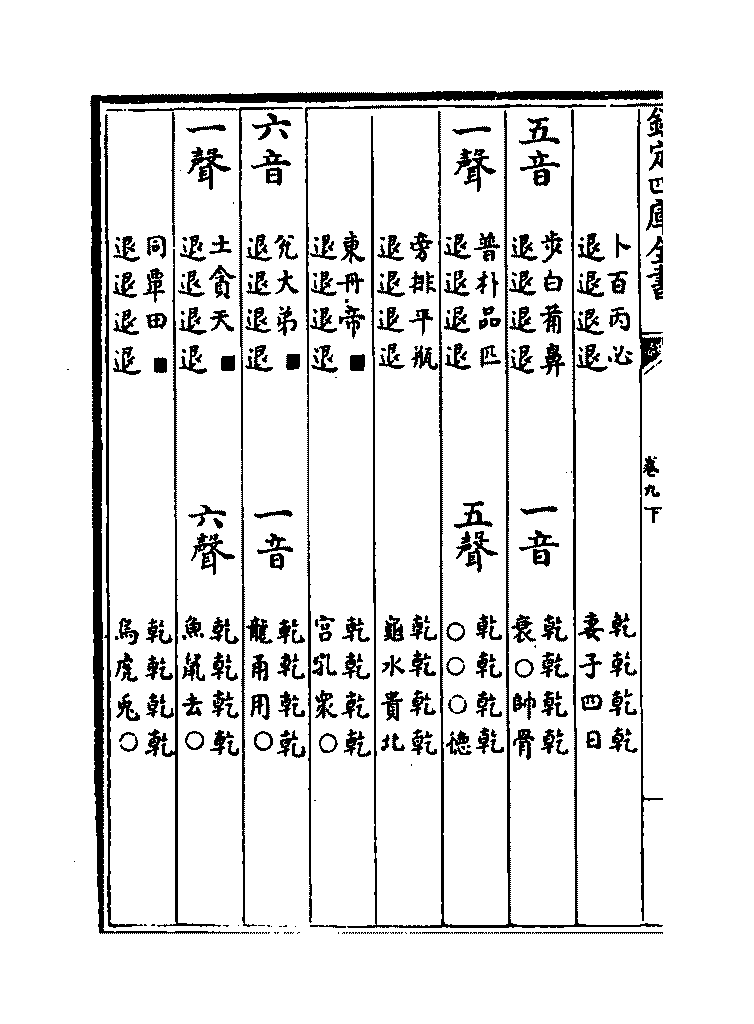 欽定四庫全書 卷九下
卜百丙必
退退退退
乾乾乾乾
妻子四日
五音
步白葡鼻
退退退退
一音
乾乾乾乾
衰○帥骨
一聲
普朴品匹
退退退退
五聲
乾乾乾乾
○○○德
旁排平瓶
退退退退
乾乾乾乾
龜水貴北
東丹帝■
退退退退
乾乾乾乾
宮孔衆○
六音
兊大弟■
退退退退
一音
乾乾乾乾
龍甬用○
一聲
土貪天■
退退退退
六聲
乾乾乾乾
魚鼠去○
同覃田■
退退退退
乾乾乾乾
烏虎兎○